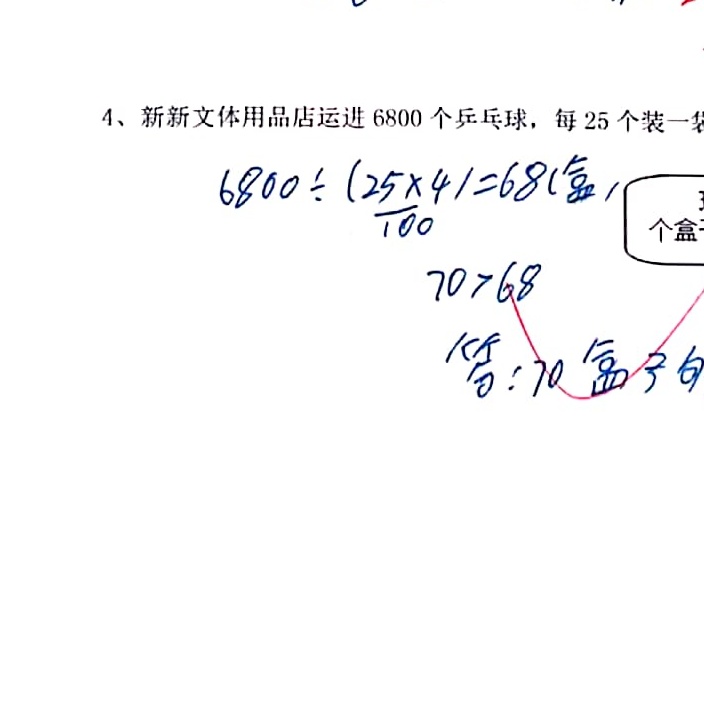 4、新新文体用品店运进 6800 个乒乓球，每 25 个装一袋
6800÷(25×4)=68(盒)
100
个盒子
70>68
答:70盒子